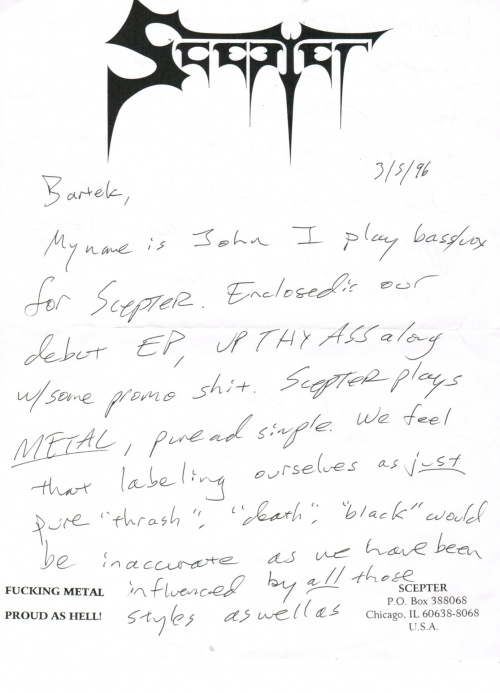 SCEPTER
3/5/96
Bartek,
My name is John I play bass/vox
for SCEPTER. Enclosed is our
debut EP, UP THY ASS along
w/some promo shit. SCEPTER plays
METAL, pure ad simple. We feel
that labeling ourselves as just
pure "thrash", "death", "black" would
be inaccurate as we have been
influenced by all those
styles as well as
FUCKING METAL
PROUD AS HELL!
SCEPTER
P.O. Box 388068
Chicago, IL 60638-8068
U.S.A.